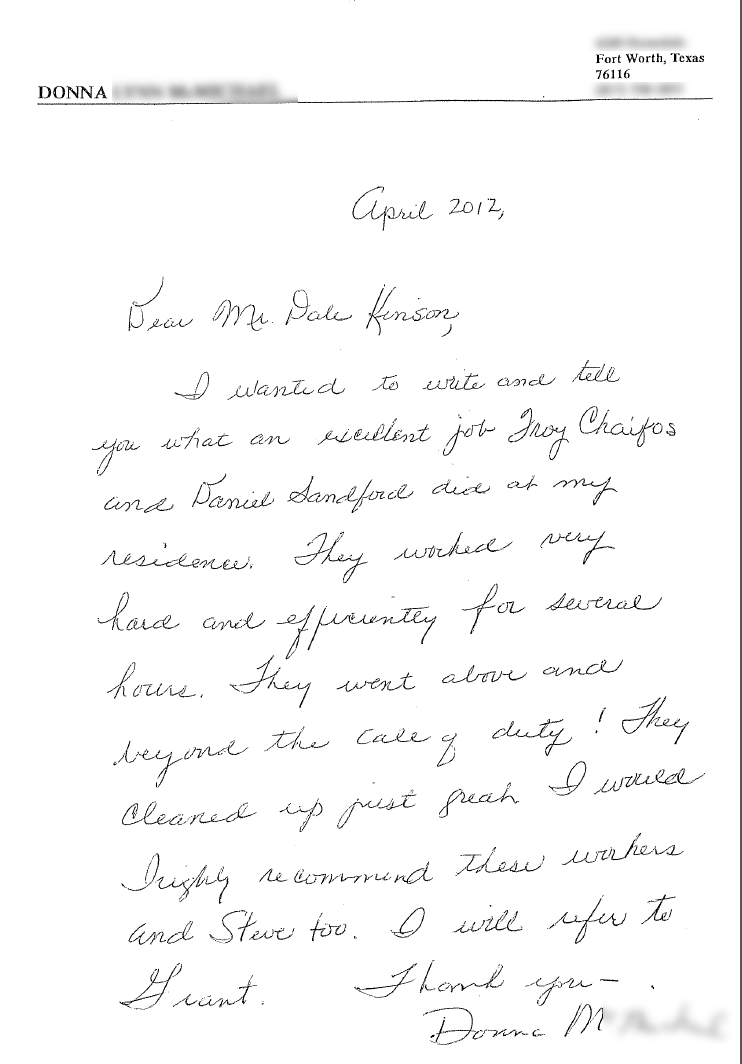 Fort Worth, Texas
76116
DONNA
April 2012,
Dear Mr. Dale Hinson,
I wanted to write and tell
you what an excellent job Troy Chaifos
and Daniel Sandford did at my
residence. They worked very
hard and efficiently for several
hours. They went above and
beyond the call of duty! They
cleaned up just great. I would
highly recommend these workers
and Steve too. I will refer to
Grant. Thank you—.
Donna M